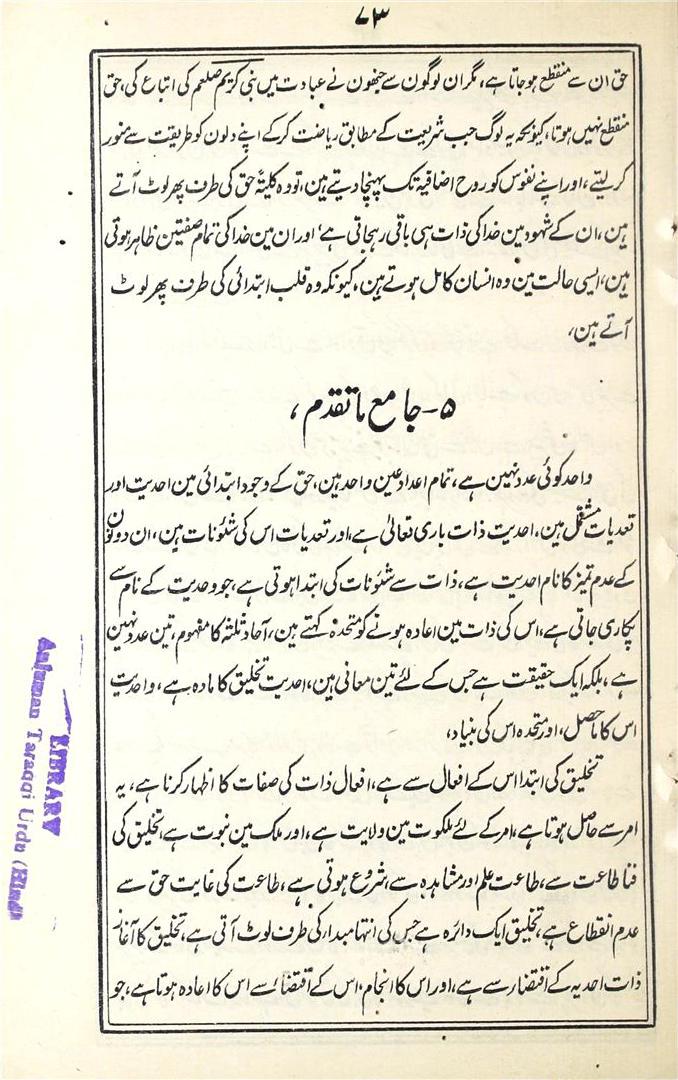 ۷۳
حق ان سے منقطع ہوجاتا ہے، مگر ان لوگون سے جنھون نے عبادت مین نبی کریم صلعم کی اتباع کی، حق
منقطع نہین ہوتا، کیونکہ یہ لوگ جب شریعت کے مطابق ریاضت کرکے اپنے دلون کو طریقت سے منور
کر لیتے، اور اپنے نفوس کو روح اضافیہ تک پہنچا دیتے ہین، تو وہ کلیتہً حق کی طرف پھر لوٹ آتے
ہین، ان کے شہود مین خدا کی ذات ہی باقی رہجاتی ہے، اور ان مین خدا کی تمام صفتین ظاہر ہوتی
ہین، ایسی حالت مین وہ انسان کامل ہوتے ہین، کیونکہ وہ قلب ابتدائی کی طرف پھر لوٹ
آتے ہین،
۵- جامع ماتقدم،
واحد کوئی عدد نہین ہے، تمام اعداد عین واحد ہین، حق کے وجود ابتدائی مین احدیت اور
تعدیات مشتمل ہین، احدیت ذات باری تعالیٰ ہے، اور تعدیات اس کی شئونات ہین، ان دونون
کے عدم تمیز کا نام احدیت ہے، ذات سے شئونات کی ابتدا ہوتی ہے، جو وحدیت کے نام سے
پکاری جاتی ہے، اس کی ذات مین اعادہ ہونے کو متحدہ کہتے ہین، آحاد ثلثہ کا مفہوم، تین عدد نہین
ہے، بلکہ ایک حقیقت ہے جس کے لئے تین معانی ہین، احدیت تخلیق کا مادہ ہے، واحدیت
اس کا ماحصل، اور متحدہ اس کی بنیاد،
تخلیق کی ابتدا اس کے افعال سے ہے، افعال ذات کی صفات کا اظہار کرنا ہے، یہ
امر سے حاصل ہوتا ہے، امر کے لئے ملکوت مین ولایت ہے، اور ملک مین نبوت ہے، تخلیق کی
فنا طاعت سے، طاعت علم اور مشاہدہ سے، شروع ہوتی ہے، طاعت کی غایت حق سے
عدم انقطاع ہے، تخلیق ایک دائرہ ہے جس کی انتہا مبدار کی طرف لوٹ آتی ہے، تخلیق کا آغاز
ذات احدیہ کے اقتضار سے ہے، اور اس کا انجام، اس کے اقتضائے سے اس کا اعادہ ہوتا ہے، جو
LIBRARY
Anjuman Taraqqi Urdu (Hind)